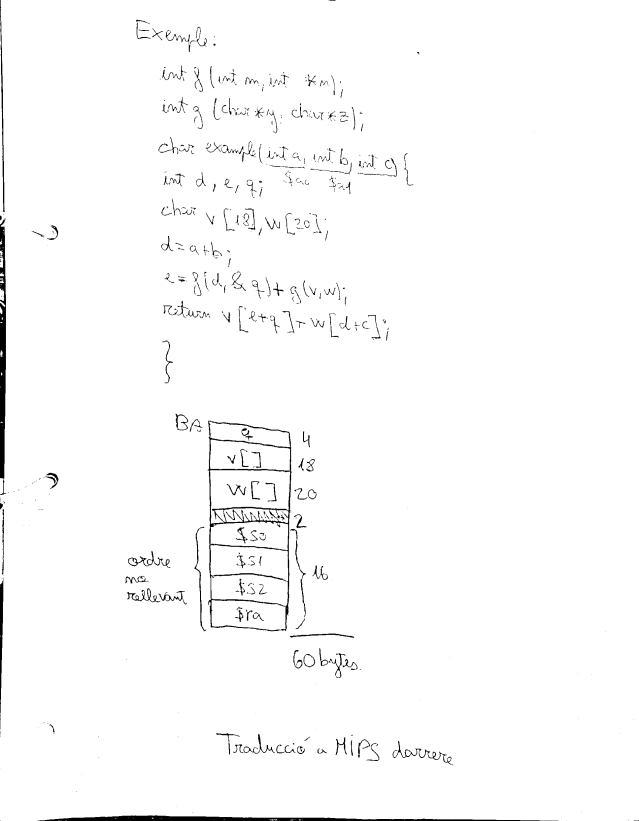 Exemple:
int f (int m, int *n);
int g (char *y, char *z);
char example(int a, int b, int c){
$a0 $a1
int d, e, q;
char v[18], w[20];
d=a+b;
e = f(d, &q) + g(v,w);
return v[e+q]+w[d+c];
}
BA q 4
v[] 18
w[] 20
2
$s0
$s1
$s2
$ra
ordre
no
rellevant
16
60 bytes.
Traducció a MIPS darrere